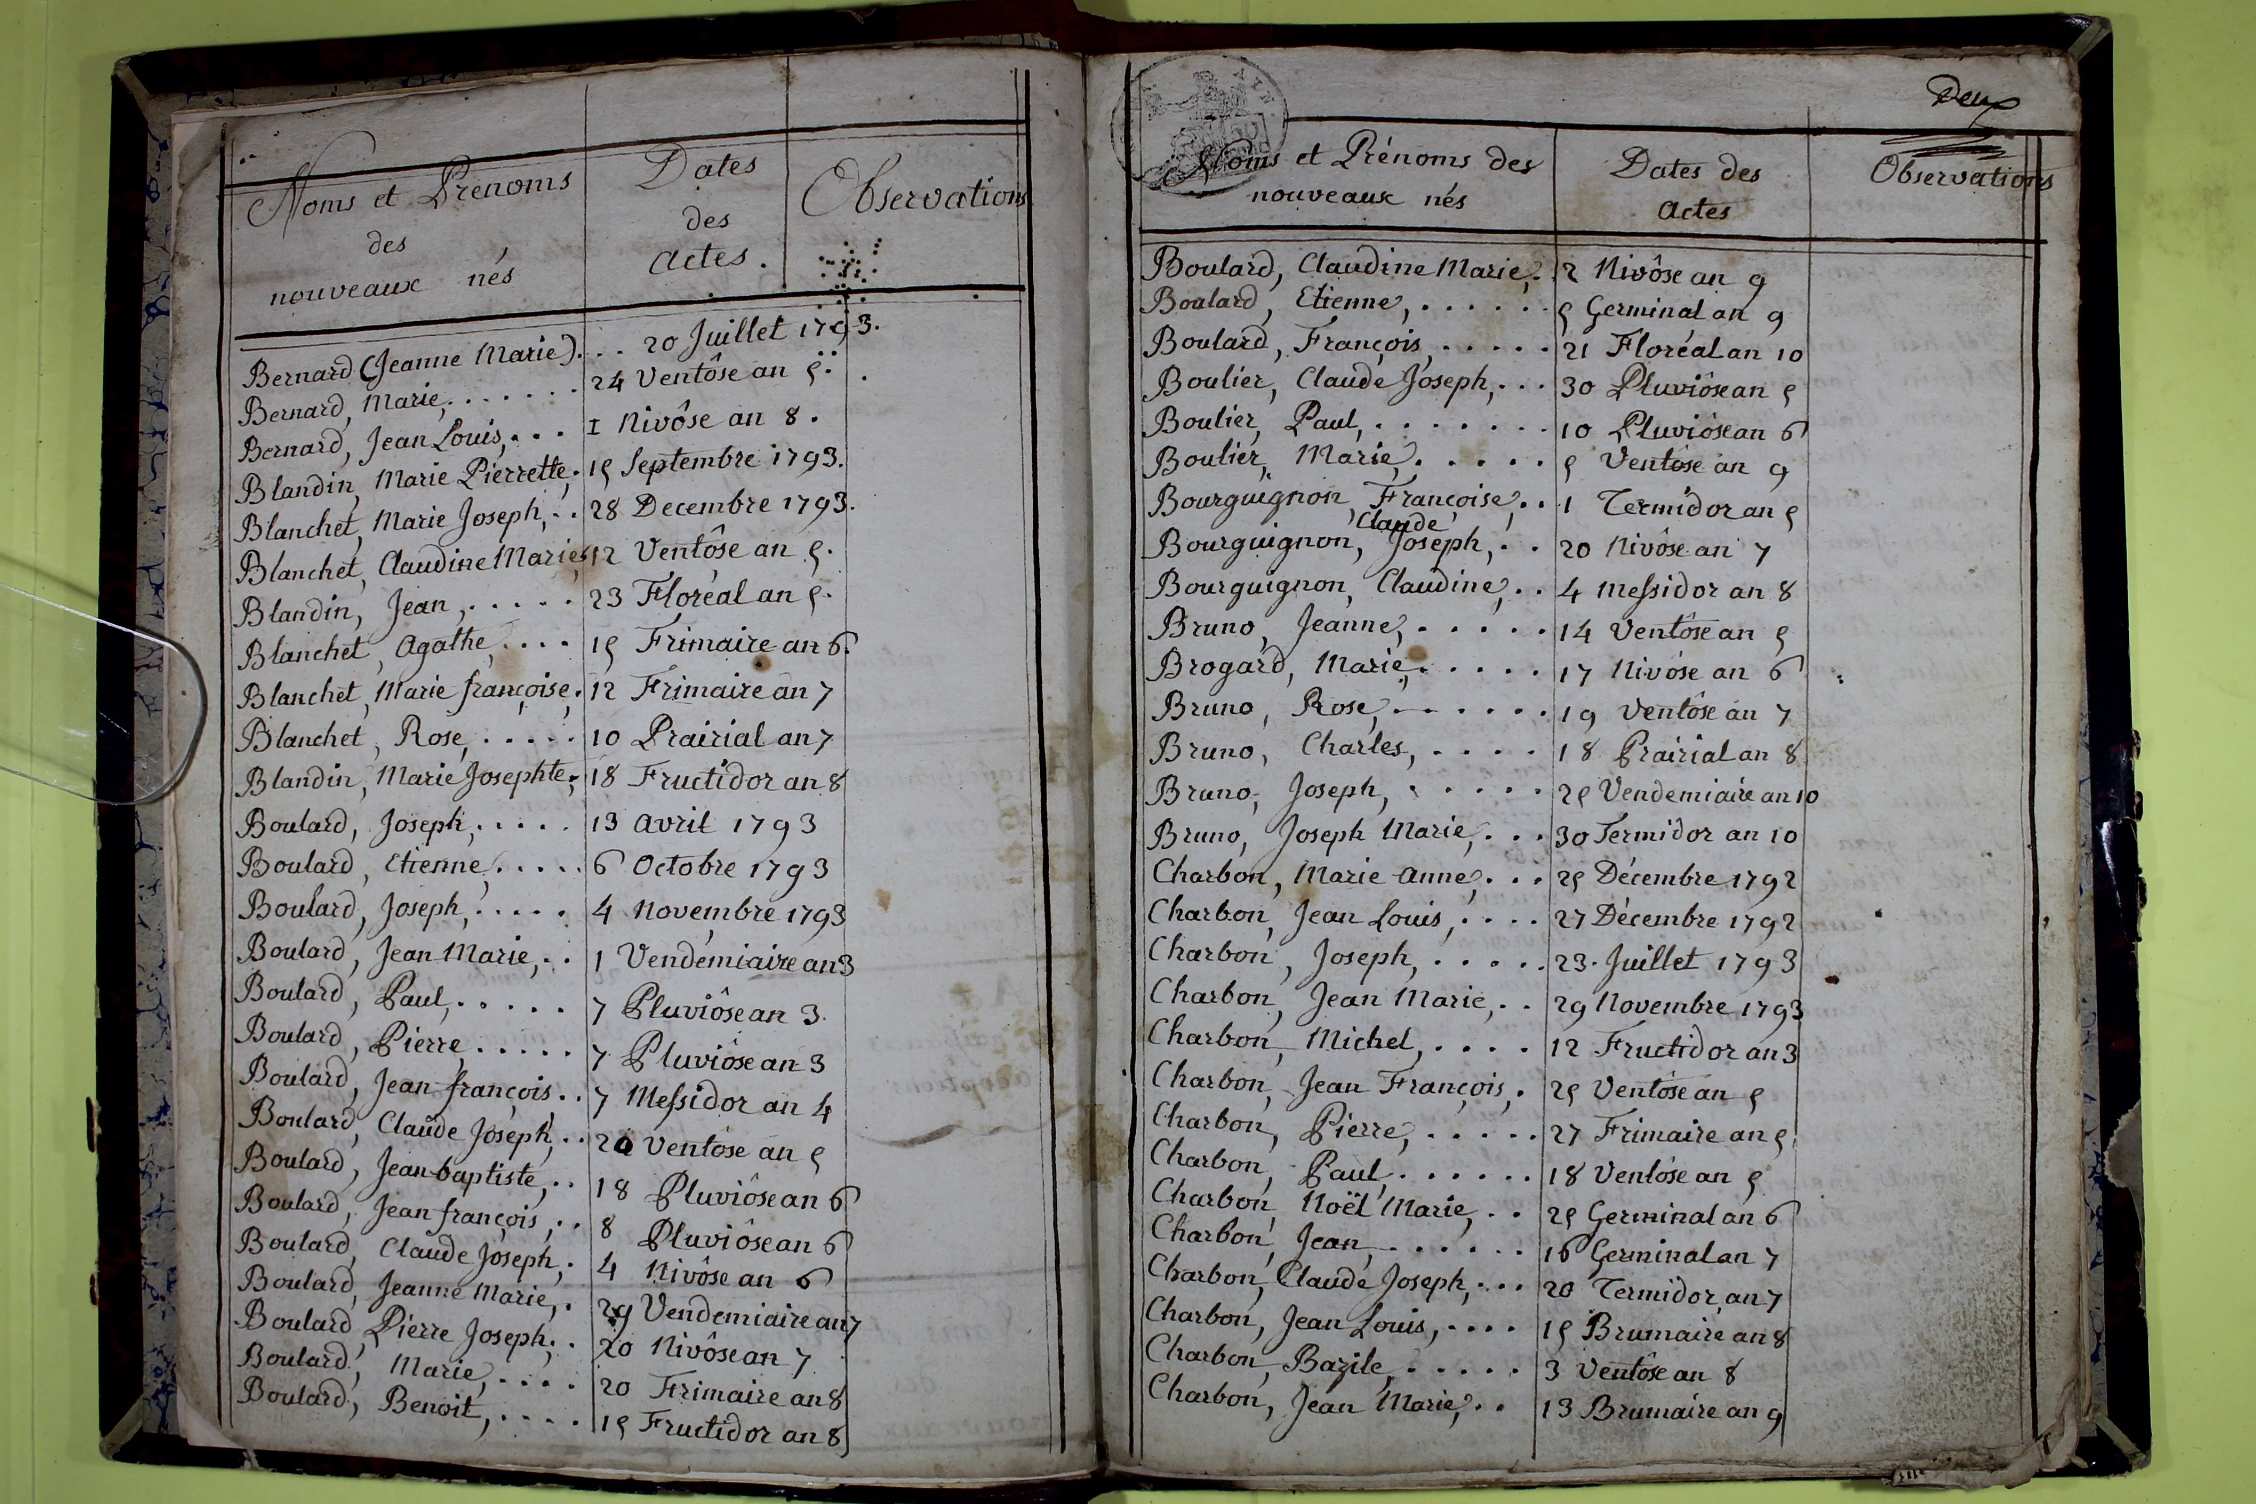 Noms et Prénoms
des
nouveaux nés
Dates
des
Actes.
Observations
Bernard (Jeanne Marie)... 20 Juillet 1793.
Bernard, Marie,...... 24 Ventôse an 5.
Bernard, Jean Louis,... 1 Nivôse an 8.
Blandin, Marie Pierrette. 15 Septembre 1793.
Blanchet, Marie Joseph,.. 28 Decembre 1793.
Blanchet, Claudine Marie, 12 Ventôse an 5.
Blandin, Jean,..... 23 Floréal an 5.
Blanchet, Agathe,.... 15 Frimaire an 6.
Blanchet, Marie françoise. 12 Frimaire an 7
Blanchet, Rose,..... 10 Prairial an 7
Blandin, Marie Josephte, 18 Fructidor an 8
Boulard, Joseph,..... 13 avril 1793
Boulard, Etienne,..... 6 Octobre 1793
Boulard, Joseph,..... 4 Novembre 1793
Boulard, Jean Marie,.. 1 Vendémiaire an 3
Boulard, Paul,..... 7 Pluviôse an 3.
Boulard, Pierre,..... 7 Pluviôse an 3
Boulard, Jean françois.. 7 Messidor an 4
Boulard, Claude Joseph,.. 20 Ventôse an 5
Boulard, Jean baptiste,.. 18 Pluviôse an 6
Boulard, Jean françois,.. 8 Pluviôse an 6
Boulard, Claude Joseph,. 4 Nivôse an 6
Boulard, Jeanne Marie,. 29 Vendemiaire an 7
Boulard, Pierre Joseph,. 20 Nivôse an 7
Boulard, Marie,.... 20 Frimaire an 8
Boulard, Benoit,.... 15 Fructidor an 8
Deux
Noms et Prénoms des
nouveaux nés
Dates des
Actes
Observations
Boulard, Claudine Marie,. 2 Nivôse an 9
Boulard, Etienne,...... 5 Germinal an 9
Boulard, François,..... 21 Floréal an 10
Boulier, Claude Joseph,... 30 Pluviôse an 5
Boulier, Paul,....... 10 Pluviôse an 6
Boulier, Marie,..... 5 Ventôse an 9
Bourguignon, Françoise,.. 1 Termidor an 5
Claude
Bourguignon, Joseph,.. 20 Nivôse an 7
Bourguignon, Claudine,.. 4 Messidor an 8
Bruno, Jeanne,..... 14 Ventôse an 5
Brogard, Marie,..... 17 Nivôse an 6
Bruno, Rose,...... 19 Ventôse an 7
Bruno, Charles,.... 18 Prairial an 8
Bruno, Joseph,..... 25 Vendemiaire an 10
Bruno, Joseph Marie,... 30 Termidor an 10
Charbon, Marie Anne,... 25 Décembre 1792
Charbon, Jean Louis,.... 27 Décembre 1792
Charbon, Joseph,..... 23. Juillet 1793
Charbon, Jean Marie,.. 29 Novembre 1793
Charbon, Michel,.... 12 Fructidor an 3
Charbon, Jean François,. 25 Ventôse an 5
Charbon, Pierre,..... 27 Frimaire an 5
Charbon, Paul,...... 18 Ventôse an 5
Charbon, Noël Marie,.. 25 Germinal an 6
Charbon, Jean,...... 16 Germinal an 7
Charbon, Claude Joseph,... 20 Termidor an 7
Charbon, Jean Louis,.... 15 Brumaire an 8
Charbon, Bazile,..... 3 Ventôse an 8
Charbon, Jean Marie,.. 13 Brumaire an 9